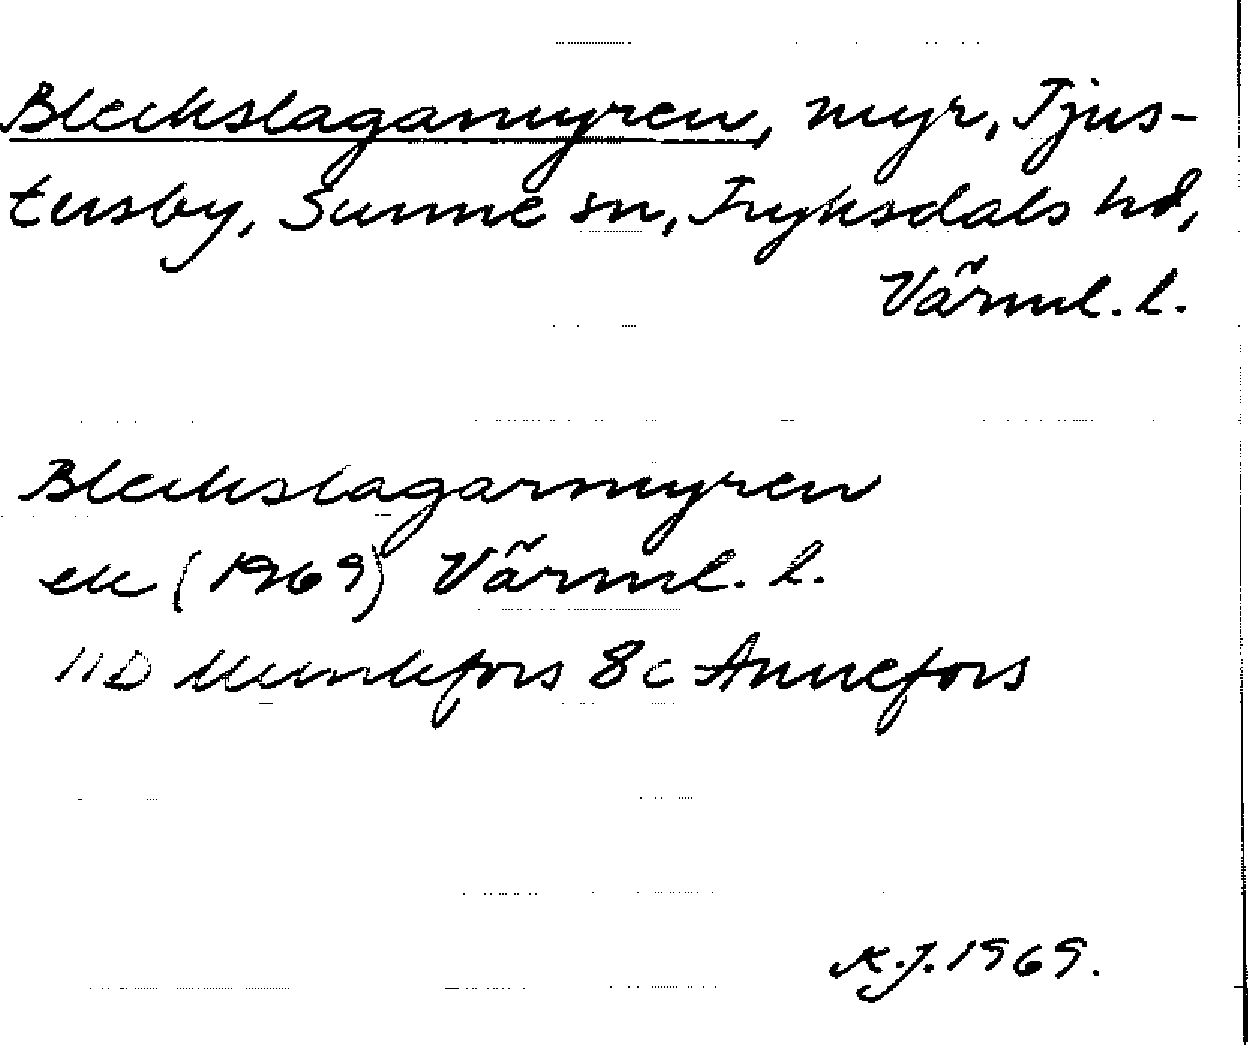 Bleckslagamyren, myr, Tjus-
tersby, Sunne sn, Fryksdals hd,
Värml. l.
Bleckslagarmyren
ek (1969) Värml. l.
11D Munkfors 8c Annefors
K.J. 1969.